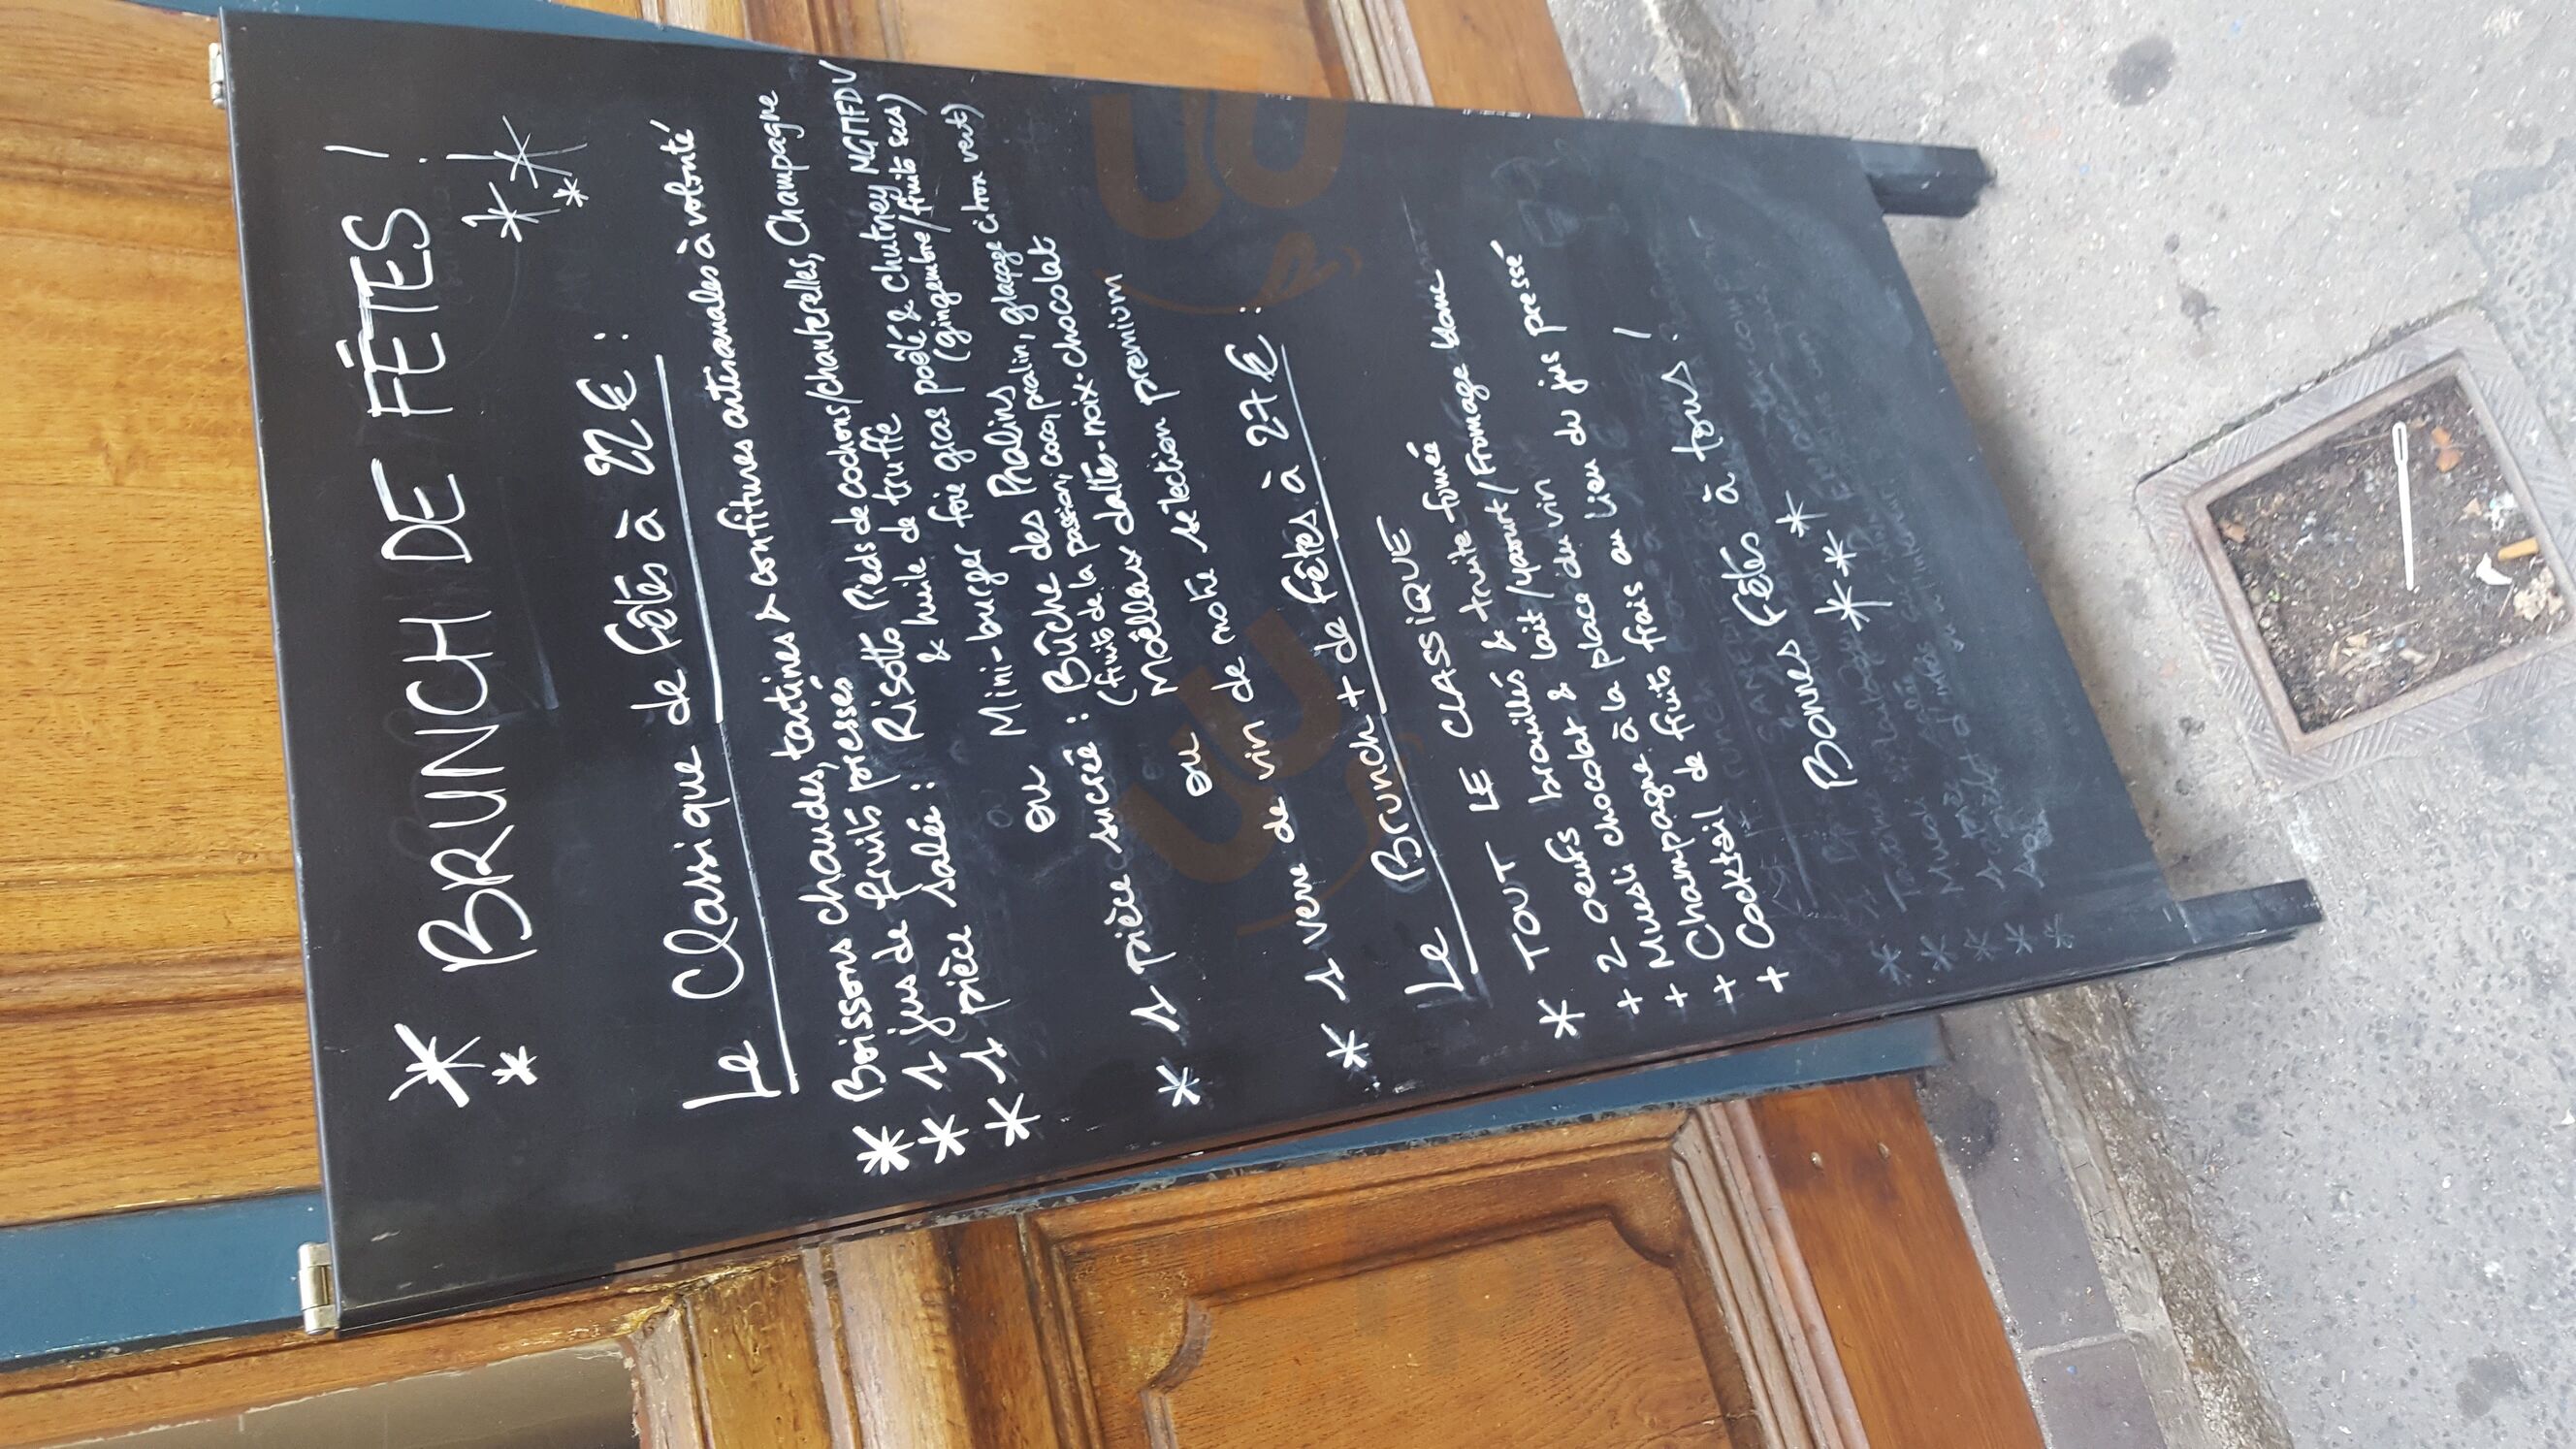 * BRUNCH DE FÊTES !
Le Classique de fêtes à 22€ :
* Boissons chaudes, tartines & confitures artisanales à volonté
* 1 jus de fruits pressés
* 1 pièce salée : Risotto Pieds de cochons/chanterelles, Champagne
& huile de truffe
ou Mini-burger foie gras poêlé & chutney
(gingembre/fruits secs)
* 1 pièce sucrée : Bûche des Pralins, glaçage citron vert)
(fruits de la passion, coco, pralin,
ou Moëlleux dattes-noix-chocolat
* 1 verre de vin de notre sélection premium
Le Brunch + de fêtes à 27€ :
* TOUT LE CLASSIQUE
+ 2 oeufs brouillés & truite fumée
+ Muesli chocolat & lait/yaourt/Fromage blanc
+ Champagne à la place du vin
+ Cocktail de fruits frais au lieu du jus pressé
Bonnes fêtes à tous !